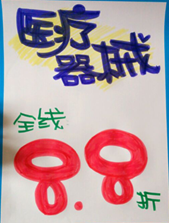 医疗
器械
全线
8.8折